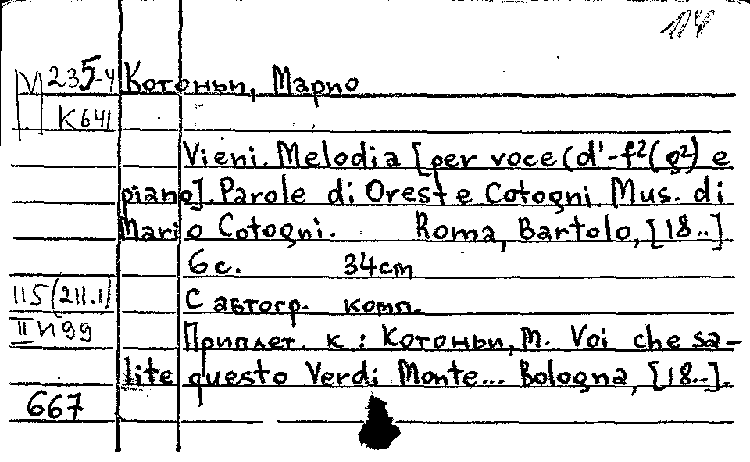 114
М 235-4 Котоньи, Марио
К 641
Vieni. Melodia [per voce (d'-f²(g²) e
piano]. Parole di Oreste Cotogni. Mus. di
Mario Cotogni. Roma, Bartolo, [18..]
6 с. 34cm
115(211.1) С автогр. комп.
II н 99 Приплет. к: Котоньи, М. Voi che sa-
lite questo Verdi Monte... Bologna, [18..].
667